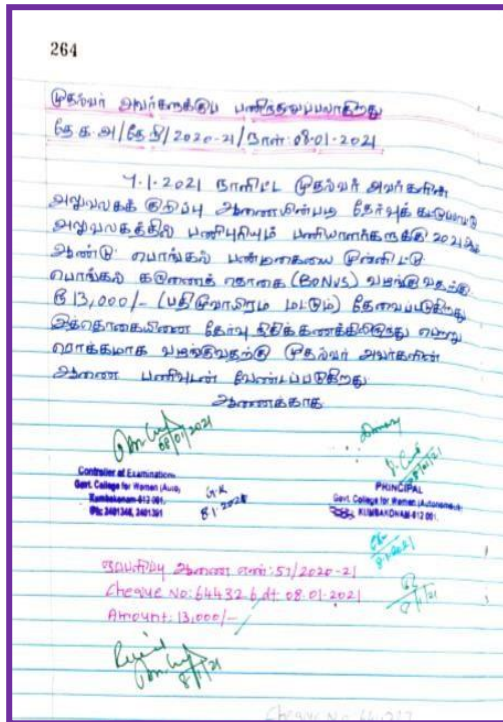 264
முதல்வர் அவர்களுக்குப் பணிந்தனுப்பலாகிறது
தே.க.அ/தே.நி/2020-21/நாள்:08-01-2021
7.1.2021 நாளிட்ட முதல்வர் அவர்களின்
அலுவலகக் குறிப்பு ஆணையின்படி தேர்வுக் கட்டுப்பாட்டு
அலுவலகத்தில் பணிபுரியும் பணியாளர்களுக்கு 2021ஆம்
ஆண்டு பொங்கல் பண்டிகையை முன்னிட்டு
பொங்கல் கருணைத் தொகை (BONUS) வழங்குவதற்கு
ரூ 13,000/- (பதிமூவாயிரம் மட்டும்) தேவைப்படுகிறது
இத்தொகையினை தேர்வு நிதிக்கணக்கிலிருந்து பெற்று
ரொக்கமாக வழங்குவதற்கு முதல்வர் அவர்களின்
ஆணை பணிவுடன் வேண்டப்படுகிறது
ஆணைக்காக
08/01/2021
Controller of Examinations
Govt. College for Women (Auto)
Kumbakonam-612 001.
G.K
8.1.2021
PRINCIPAL
Govt. College for Women (Autonomous)
KUMBAKONAM-612 001.
ஆணை எண்: 57/2020-21
Cheque No: 644326 dt 08.01.2021
Amount: 13,000/-
Received
8/1/21
Cheque No